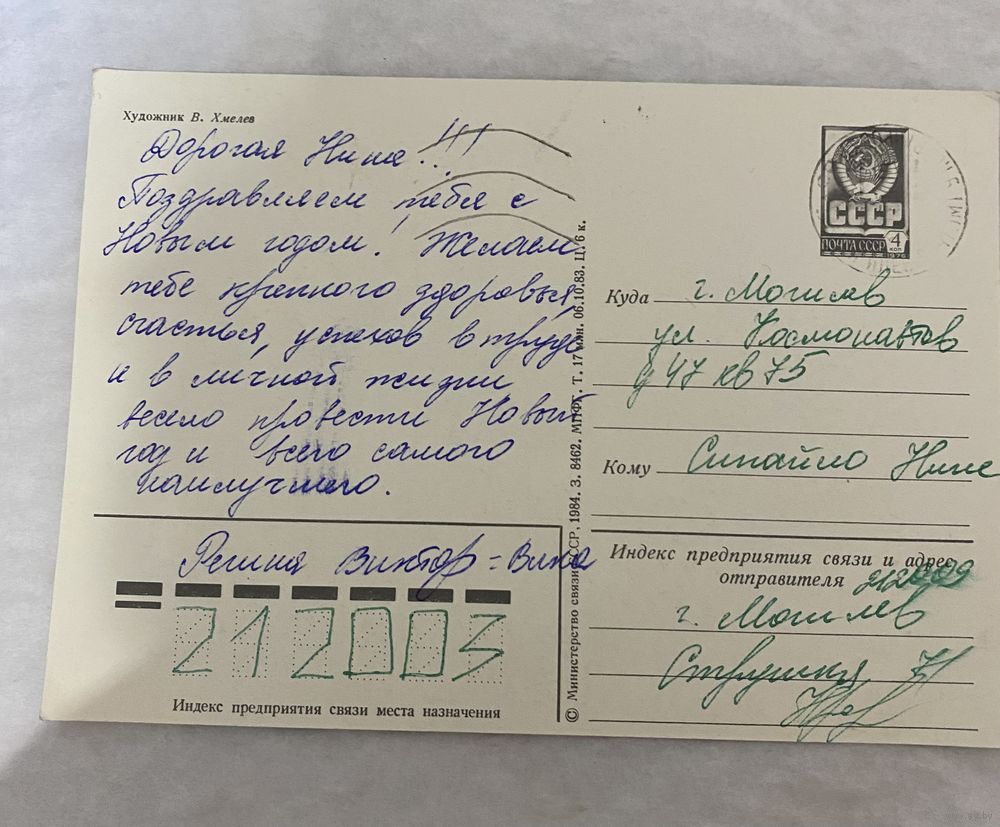 Художник В. Хмелев
Дорогая Нина!!!
Поздравляем тебя с
Новым годом! Желаем
тебе крепкого здоровья,
счастья, успехов в труде
и в личной жизни
весело провести Новый
год и всего самого
наилучшего.
Виктор = Вика
212003
Индекс предприятия связи места назначения
© Министерство связи СССР, 1984. З. 8462. МПФГ. Т. 17 млн. 06.10.83. Ц. 6 к.
СССР
ПОЧТА СССР 4 КОП
1976
Куда г. Могилев
ул. Космонавтов
д 47 кв 75
Кому Синайло Нине
Индекс предприятия связи и адрес
отправителя 212009
г. Могилев